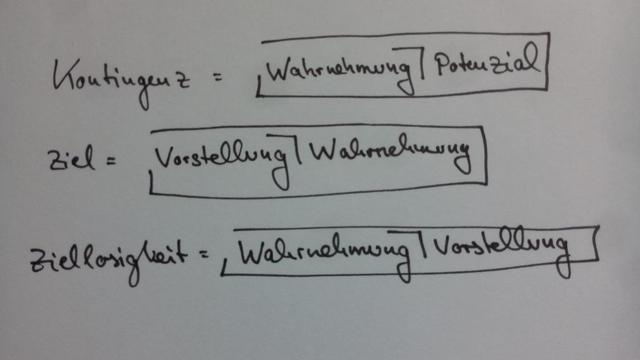 Kontingenz = Wahrnehmung Potenzial
Ziel = Vorstellung Wahrnehmung
Ziellosigkeit = Wahrnehmung Vorstellung